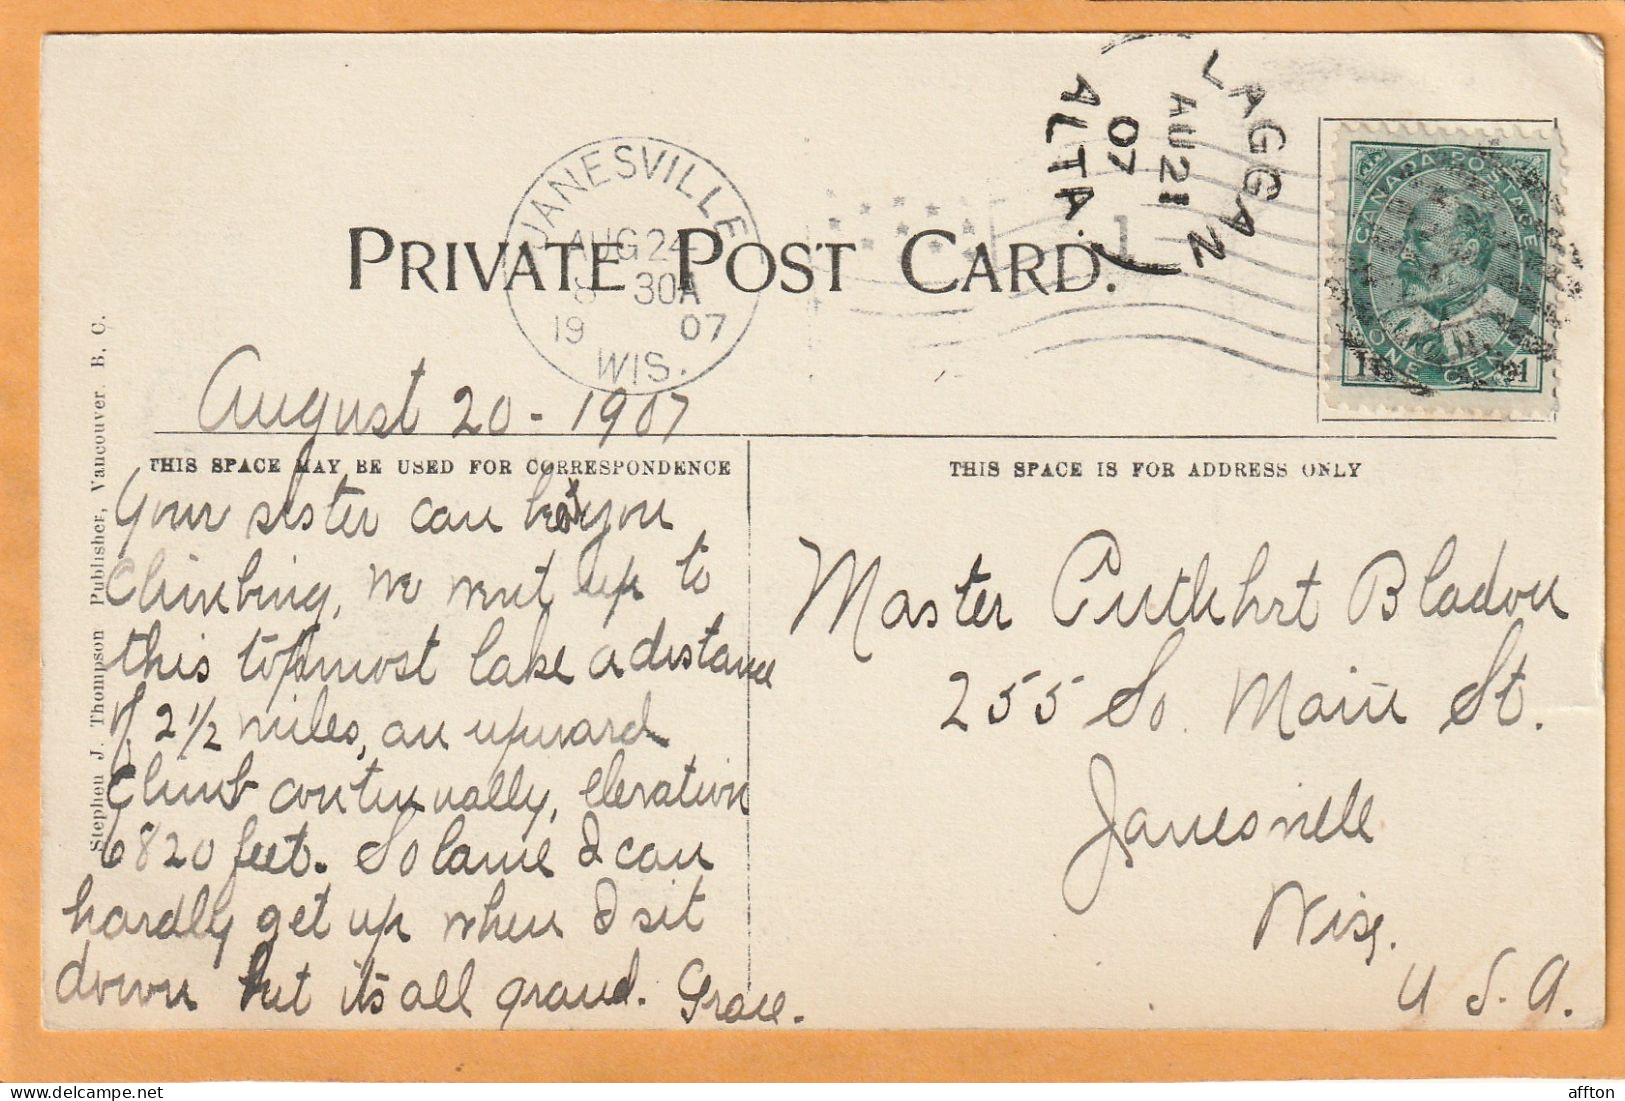 LAGGAN
AU 21
07
ALTA.
JANESVILLE
AUG 24
8 30A
19 07
WIS.
CANADA POSTAGE
ONE CENT
1 1
PRIVATE POST CARD.
August 20 - 1907
THIS SPACE MAY BE USED FOR CORRESPONDENCE
THIS SPACE IS FOR ADDRESS ONLY
Stephen J. Thompson Publisher, Vancouver. B. C.
Your sister can beat you
Climbing, we went up to
this topmost lake a distance
of 2 1/2 miles, an upward
Climb continually, elevation
6820 feet. So lame I can
hardly get up when I sit
down but it's all grand. Grace.
Master Bladon
255 So. Main St.
Janesville
Wis.
U. S. A.
affton